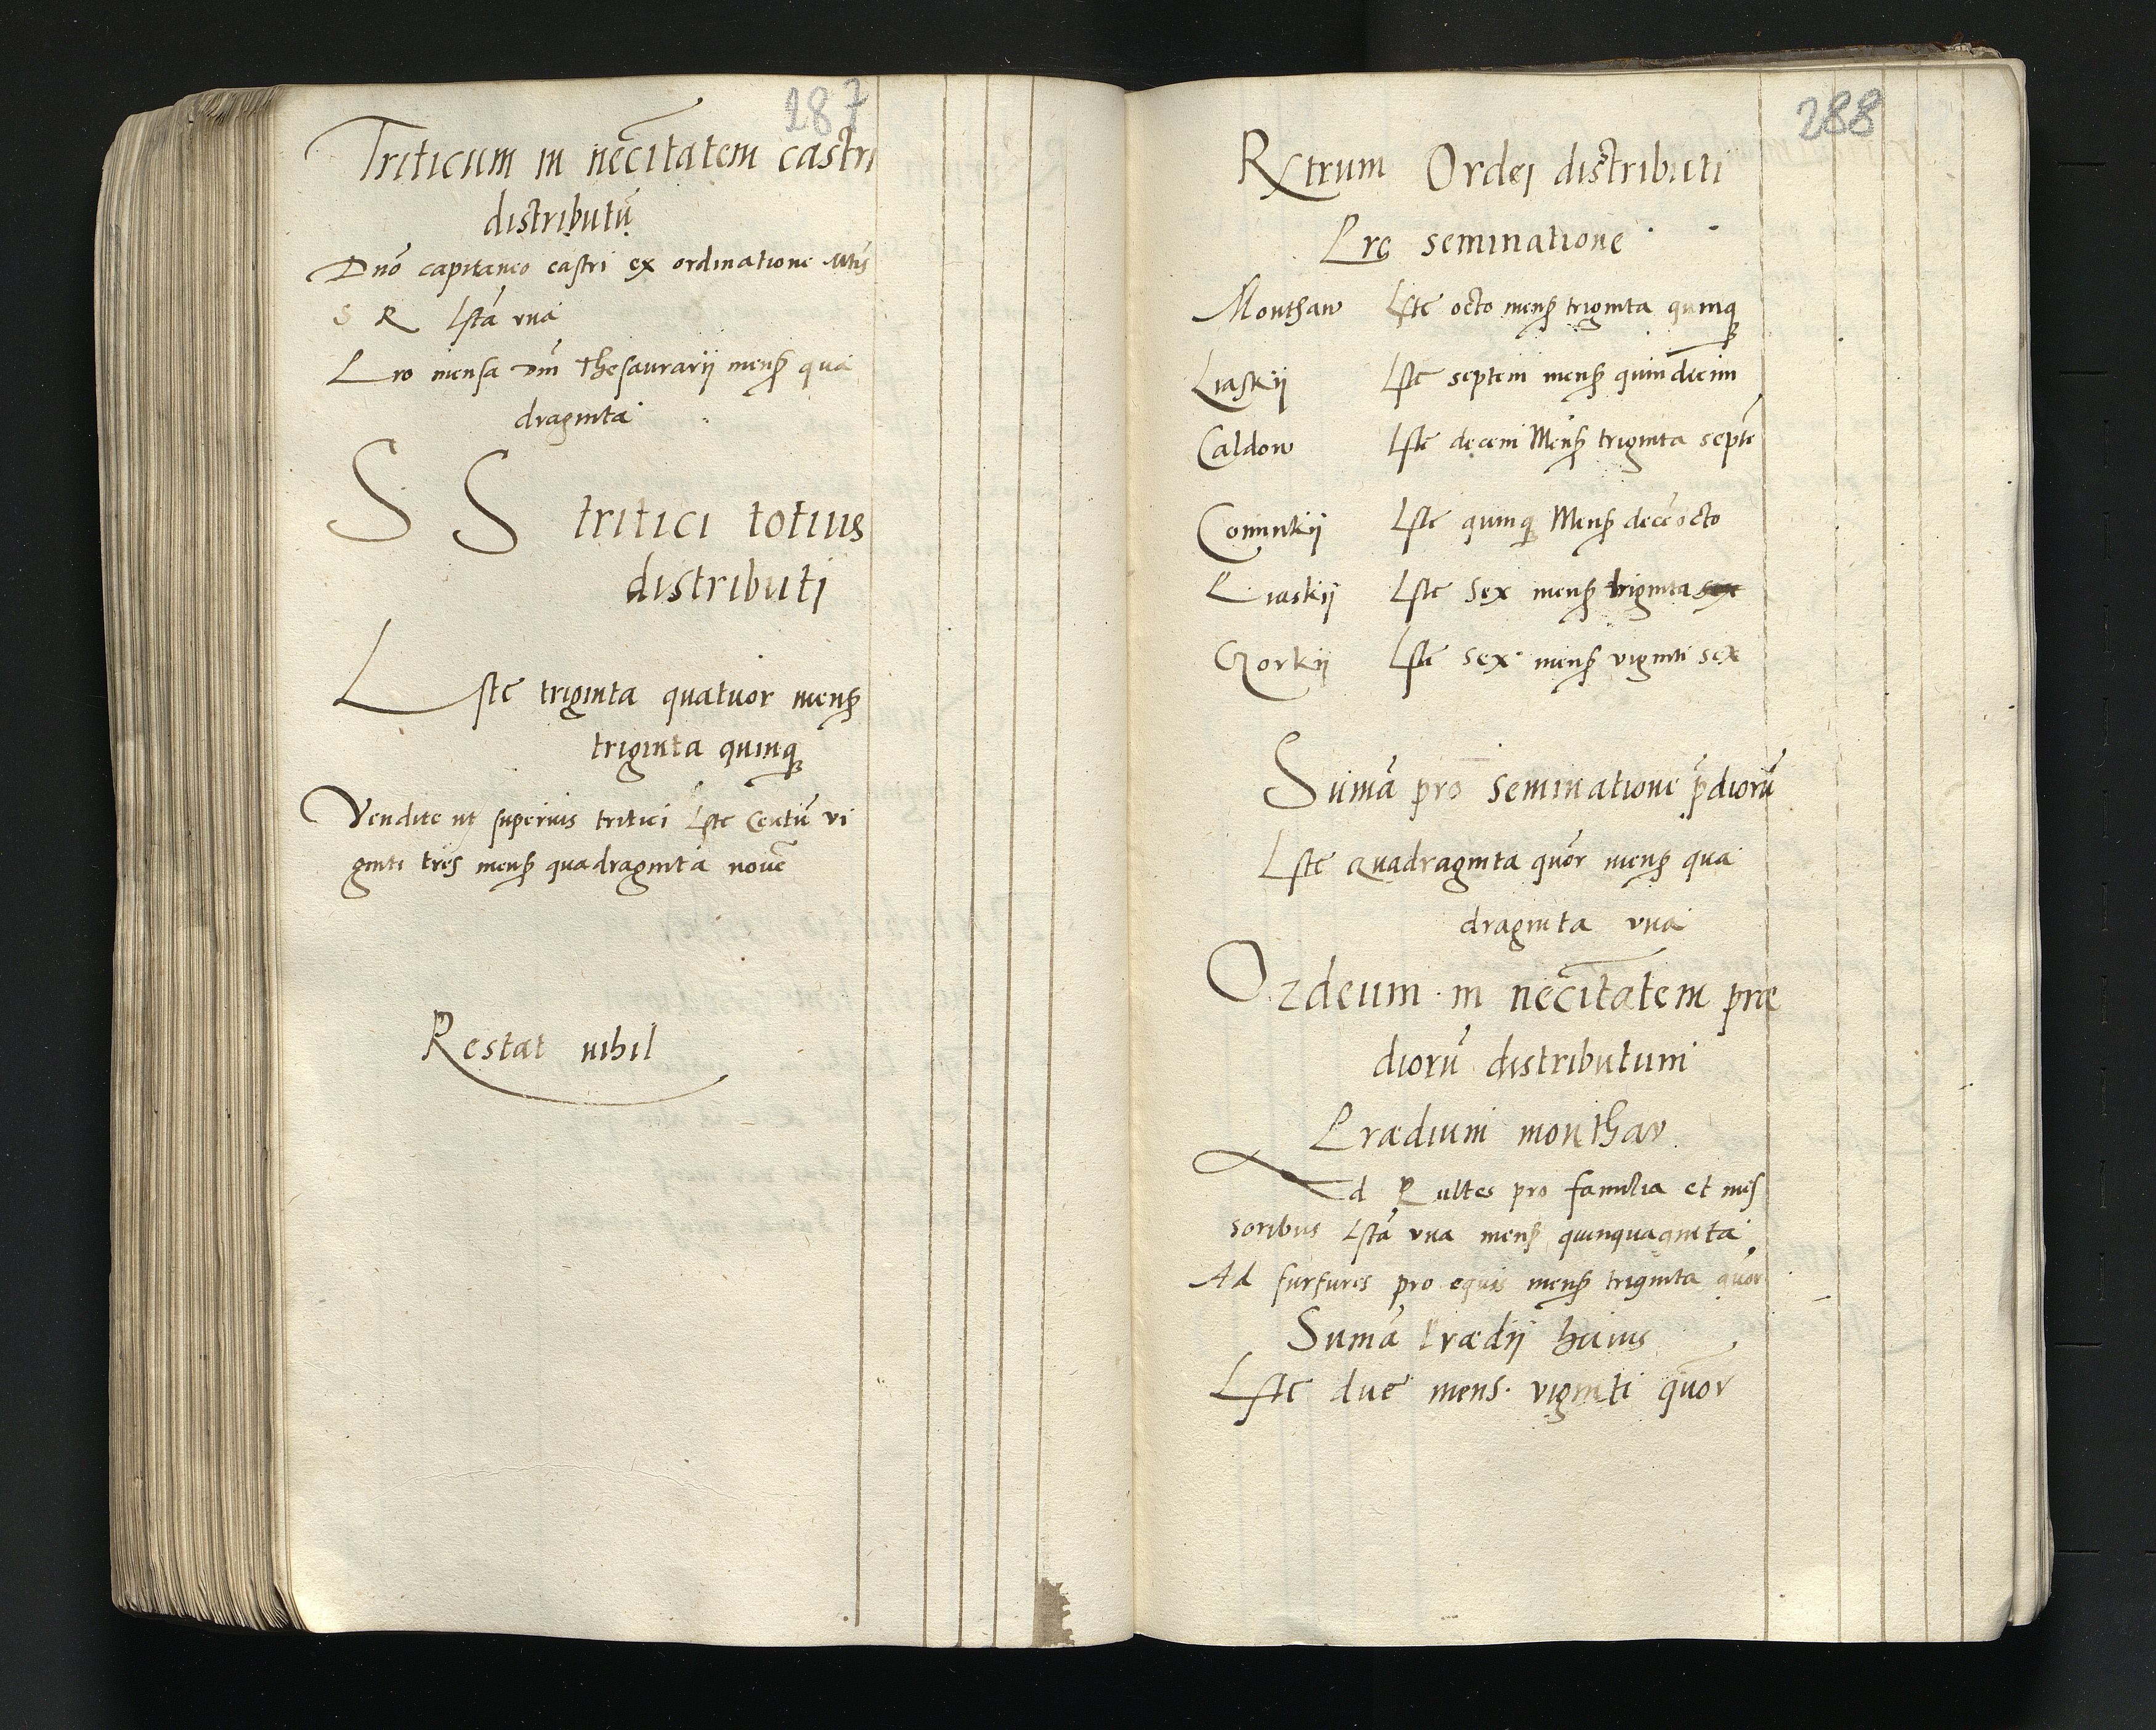 287
Triticum in nec̃itatem castri
distributũ
Dno͂ capitaneo castri ex ordinatione
S R Lstã vna
Pro mensa dnĩ Thesaurarij mens̃ qua
draginta
S S tritici totius
distributi
Lste triginta quatuor mens̃
triginta quinq
Vendite ut superius tritici Lste Centũ vi
ginti tres mens̃ quadraginta novẽ
Restat nihil
288
Rxtrum Ordej distributi
Pro seminatione
Monthaw Lste octo mens̃ triginta quinq
Liaskij Lste septem mens̃ quindicim
Caldow Lste decem Mens̃ triginta septẽ
Comnikij Lste quinq Mens̃ decẽ octo
Liaskij Lste sex mens̃ triginta sex
Czorkij Lste sex mens̃ viginti sex
Sumã pro seminatione p̃diorũ
Lste Quadraginta quõr mens̃ qua
draginta vna
Ordeum in nec̃itatem præ
diorũ distributum
Prædium monthav
Ad Pultes pro familia et mes
soribus Lstã vna mens̃ quinquaginta
Ad furfures pro equis mens̃ triginta quõr
Sumã Prædij huius
Lste due mens. viginti quõr